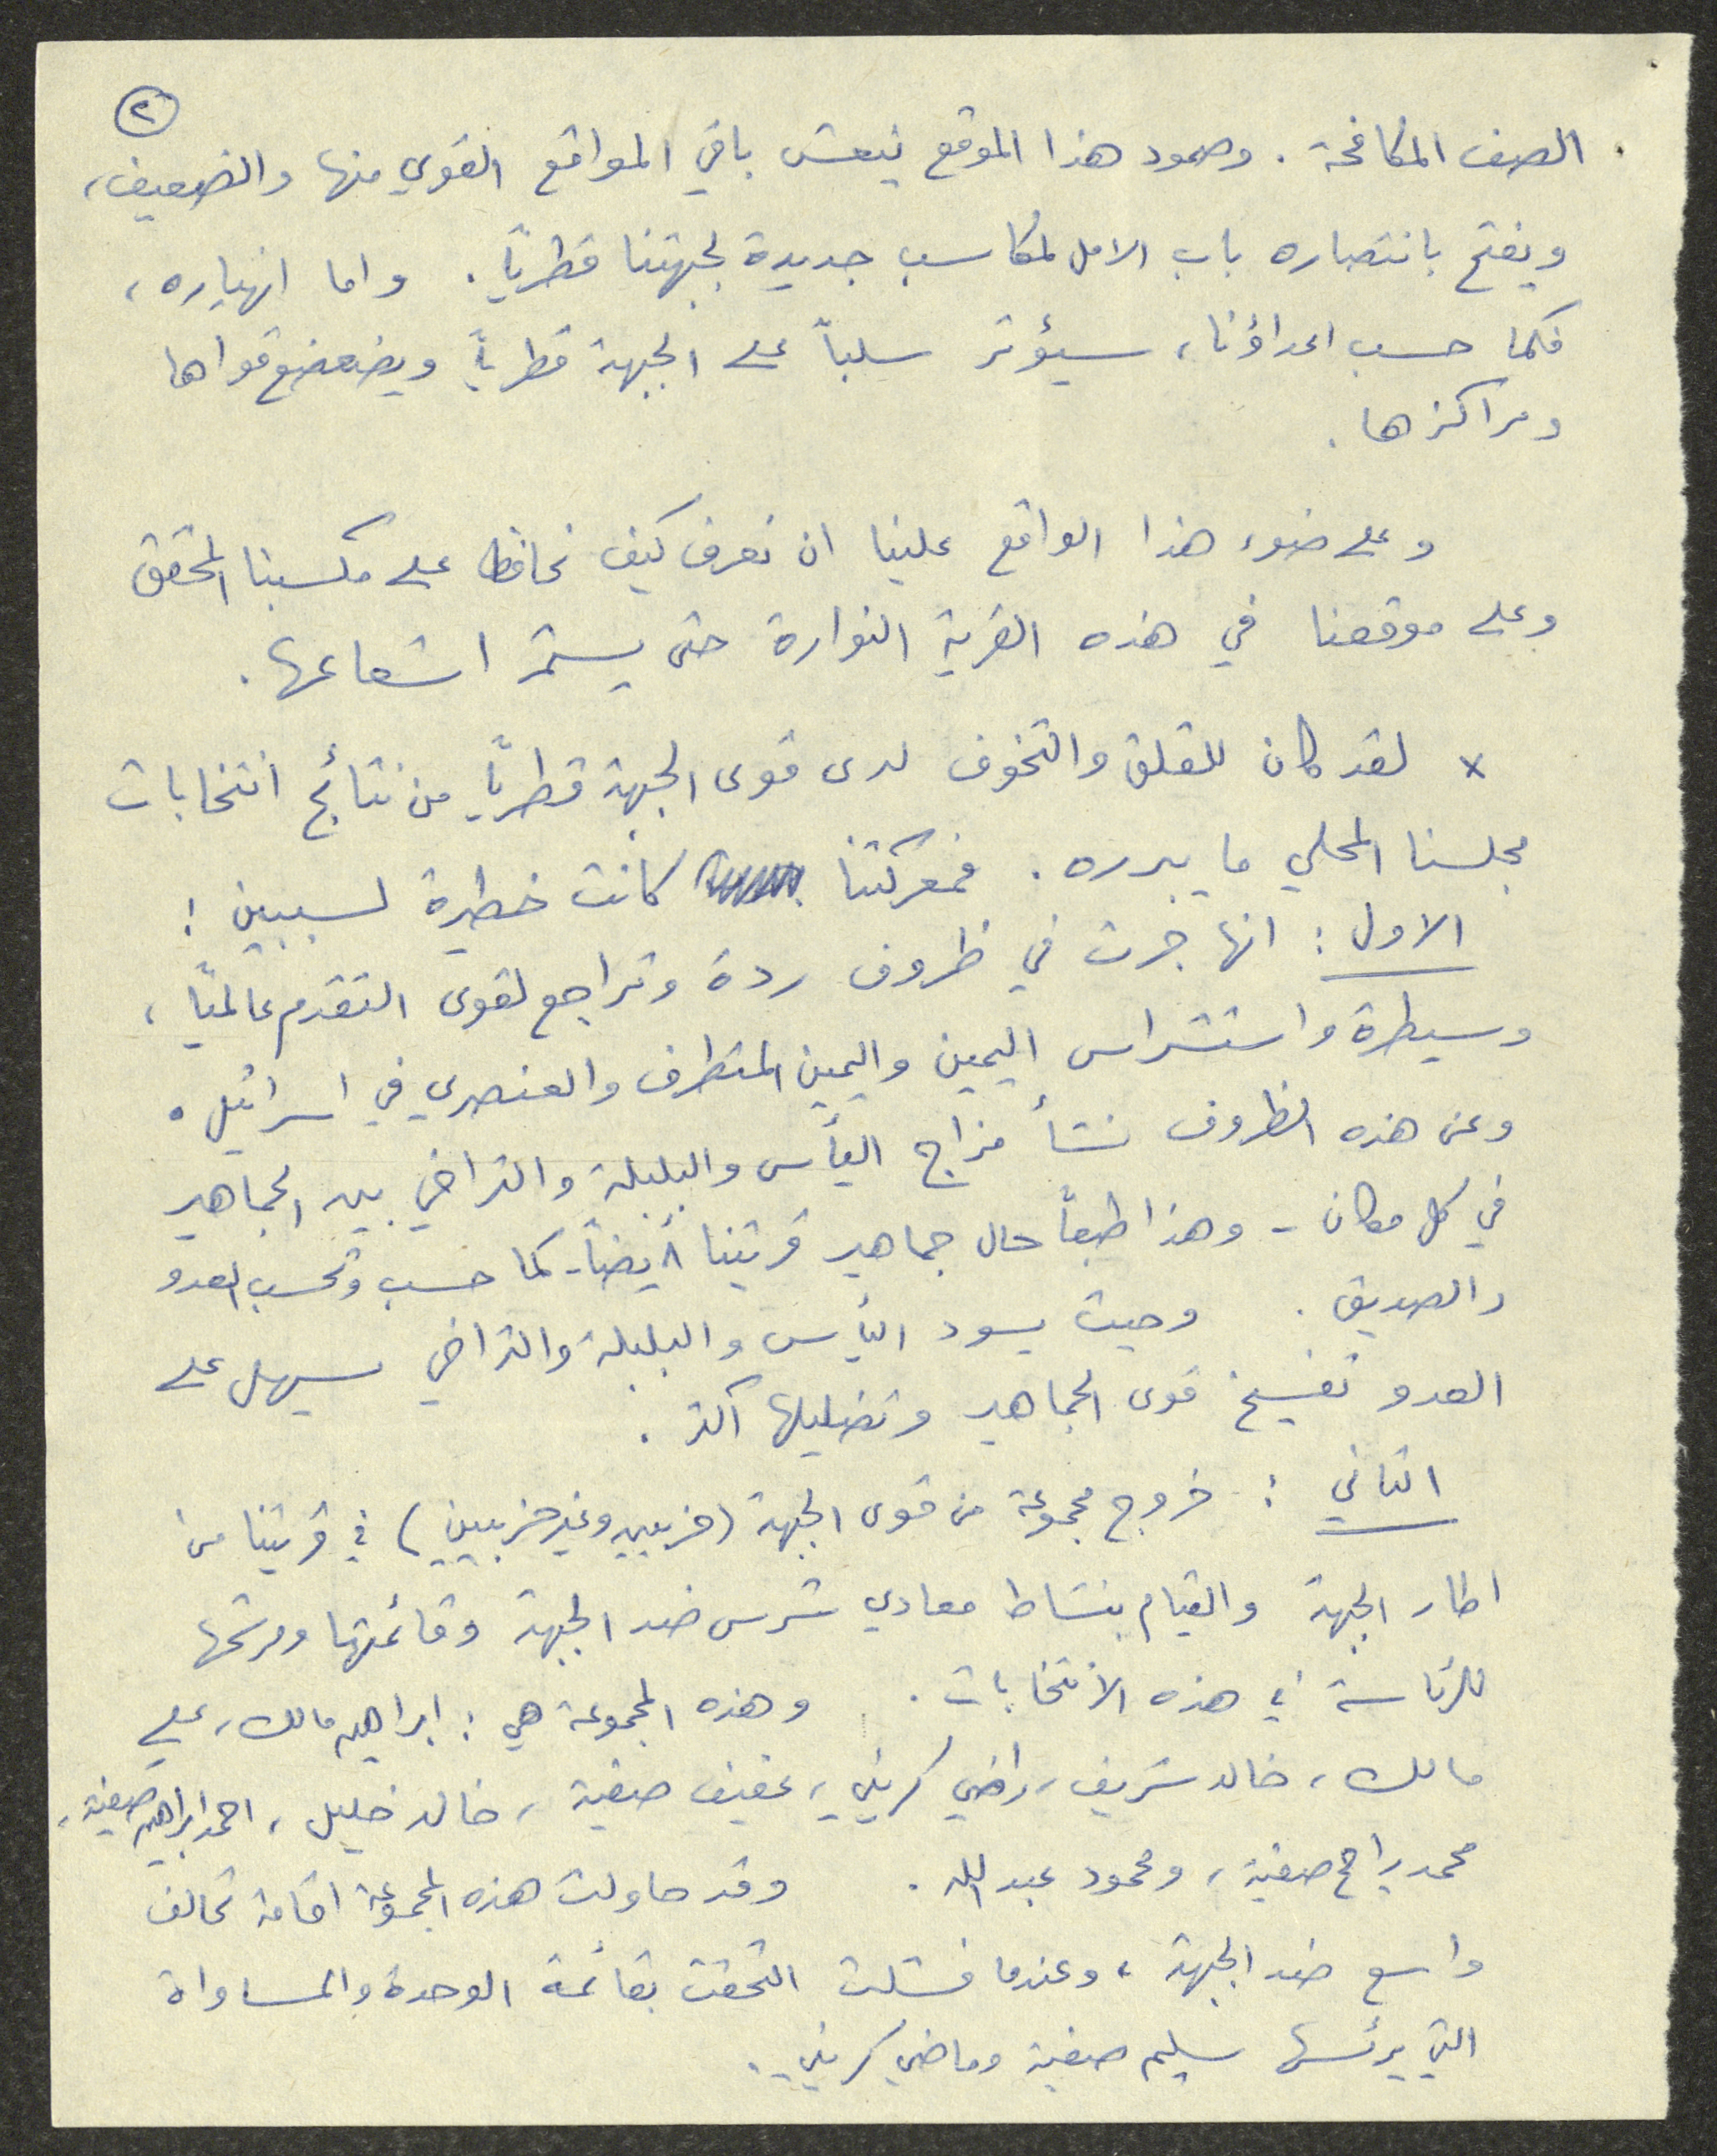 ٢
الصف المكافحة. وصمود هذا الموقع ينعش باقي المواقع القوي منها والضعيف،
ويفتح بانتصاره باب الامل لمكاسب جديدة لجبهتنا قطرياً. واما انهياره،
فكما حسب اعداؤنا، سيؤثر سلباً على الجبهة قطرياً ويضعضع قواها
ومراكزها.
وعلى ضوء هذا الواقع علينا ان نعرف كيف نحافظ على مكسبنا المحقق
وعلى موقعنا في هذه القرية النوارة حتى يستمر اشعاعها.
* لقد كان للقلق والتخوف لدى قوى الجبهة قطرياً من نتائج انتخابات
مجلسنا المحلي ما يبرره. فمعركتنا كانت خطيرة لسببين:
الاول: انها جرت في ظروف ردة وتراجع لقوى التقدم عالمياً،
وسيطرة واستشراس اليمين واليمين المتطرف والعنصري في اسرائيل.
وعن هذه الظروف نشأ مزاج اليأس والبلبلة والتراخي بين الجماهير
في كل مكان - وهذا طبعاً حال جماهير قريتنا أيضاً - كما حسب وتحسب العدو
والصديق. وحيث يسود اليأس والبلبلة والتراخي يسهل على
العدو تفسيخ قوى الجماهير وتضليلها أكثر.
الثاني: خروج مجموعة من قوى الجبهة (حزبيين وغير حزبيين) في قريتنا من
اطار الجبهة والقيام بنشاط معادي شرس ضد الجبهة وقائمتها ومرشحها
للرئاسة في هذه الانتخابات. وهذه المجموعة هي: ابراهيم مالك، علي
مالك، خالد شريف، راضي كريني، عفيف صفية، خالد خليل، احمد ابراهيم صفية،
محمد راجح صفية، ومحمود عبد الله. وقد حاولت هذه المجموعة اقامة تحالف
واسع ضد الجبهة، وعندما فشلت التحقت بقائمة الوحدة والمساواة
التي يرئسها سليم صفية وماضي كريني.